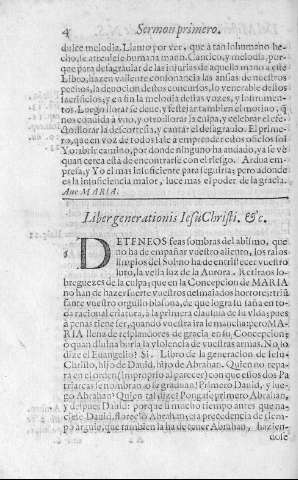 4 Sermon primero.
dulce melodia. Llanto por ver, que a tan lo humano he-
cho, le atreuiesse humana mano. Cantico, y melodia, por-
que para desagrauiar de las injurias de aquella mano a este
Libro, hazen valiente consonancia las ansias de nuestros
pechos, la deuocion destos concursos, lo venerable destos
sacrificios, y en fin la melodia destas vozes, y instrumen-
tos. Luego llorar se deue, y festejar tambien el motiuo, q
nos combida à vno, y otro: llorar la culpa, y celebrar el efe-
cto: llorar la descortesia, y cantar el desagrauio. El prime-
ro, que en voz de todos sale a emprender estos oficios soi
Yo: abrir camino, por donde ninguno ha andado, ya se vè
quan cerca està de encontrarse con el riesgo. Ardua em-
presa, y Yo el mas insuficiente para seguirla; pero adonde
es la insuficiencia maior, luce mas el poder de la gracia.
Aue MARIA.
Liber generationis Iesu Christi. &c.
DETENEOS feas sombras del abismo, que
no ha de empañar vuestro aliento, los rasos
limpios del Solino ha de entristecer vuestro
luto, la vella luz de la Aurora. Retiraos lo-
breguezes de la culpa; que en la Concepcion de MARIA
no han de hazer suerte vuestros desmaiados horrores; triũ-
fante vuestro orgullo blasona, de que logra su saña en to-
da racional criatura, à la primera clausula de su vida; pues
à penas tiene ser, quando vuestra ira le mancha; pero MA-
RIA llena de resplandores de gracia en su Concepcion;
ò quan diuina burla la violencia de vuestras armas. No lo
dize el Euangelio? Si. Libro de la generacion de Iesu-
Christo, hijo de Dauid, hijo de Abrahan. Quien no repa-
ra en el orden (improprio al parecer) con que essos dos Pa-
triarcas se nombran, o se graduan? Primero Dauid, y lue-
go Abrahan? Quien tal dize? Pongase primero Abrahan,
y despues Dauid: porque si mucho tiempo antes que na-
ciesse Dauid, floreciò Abrahan; essa precedencia de tiem-
po arguie, que tambien la ha de tener Abrahan, hazien-
dose